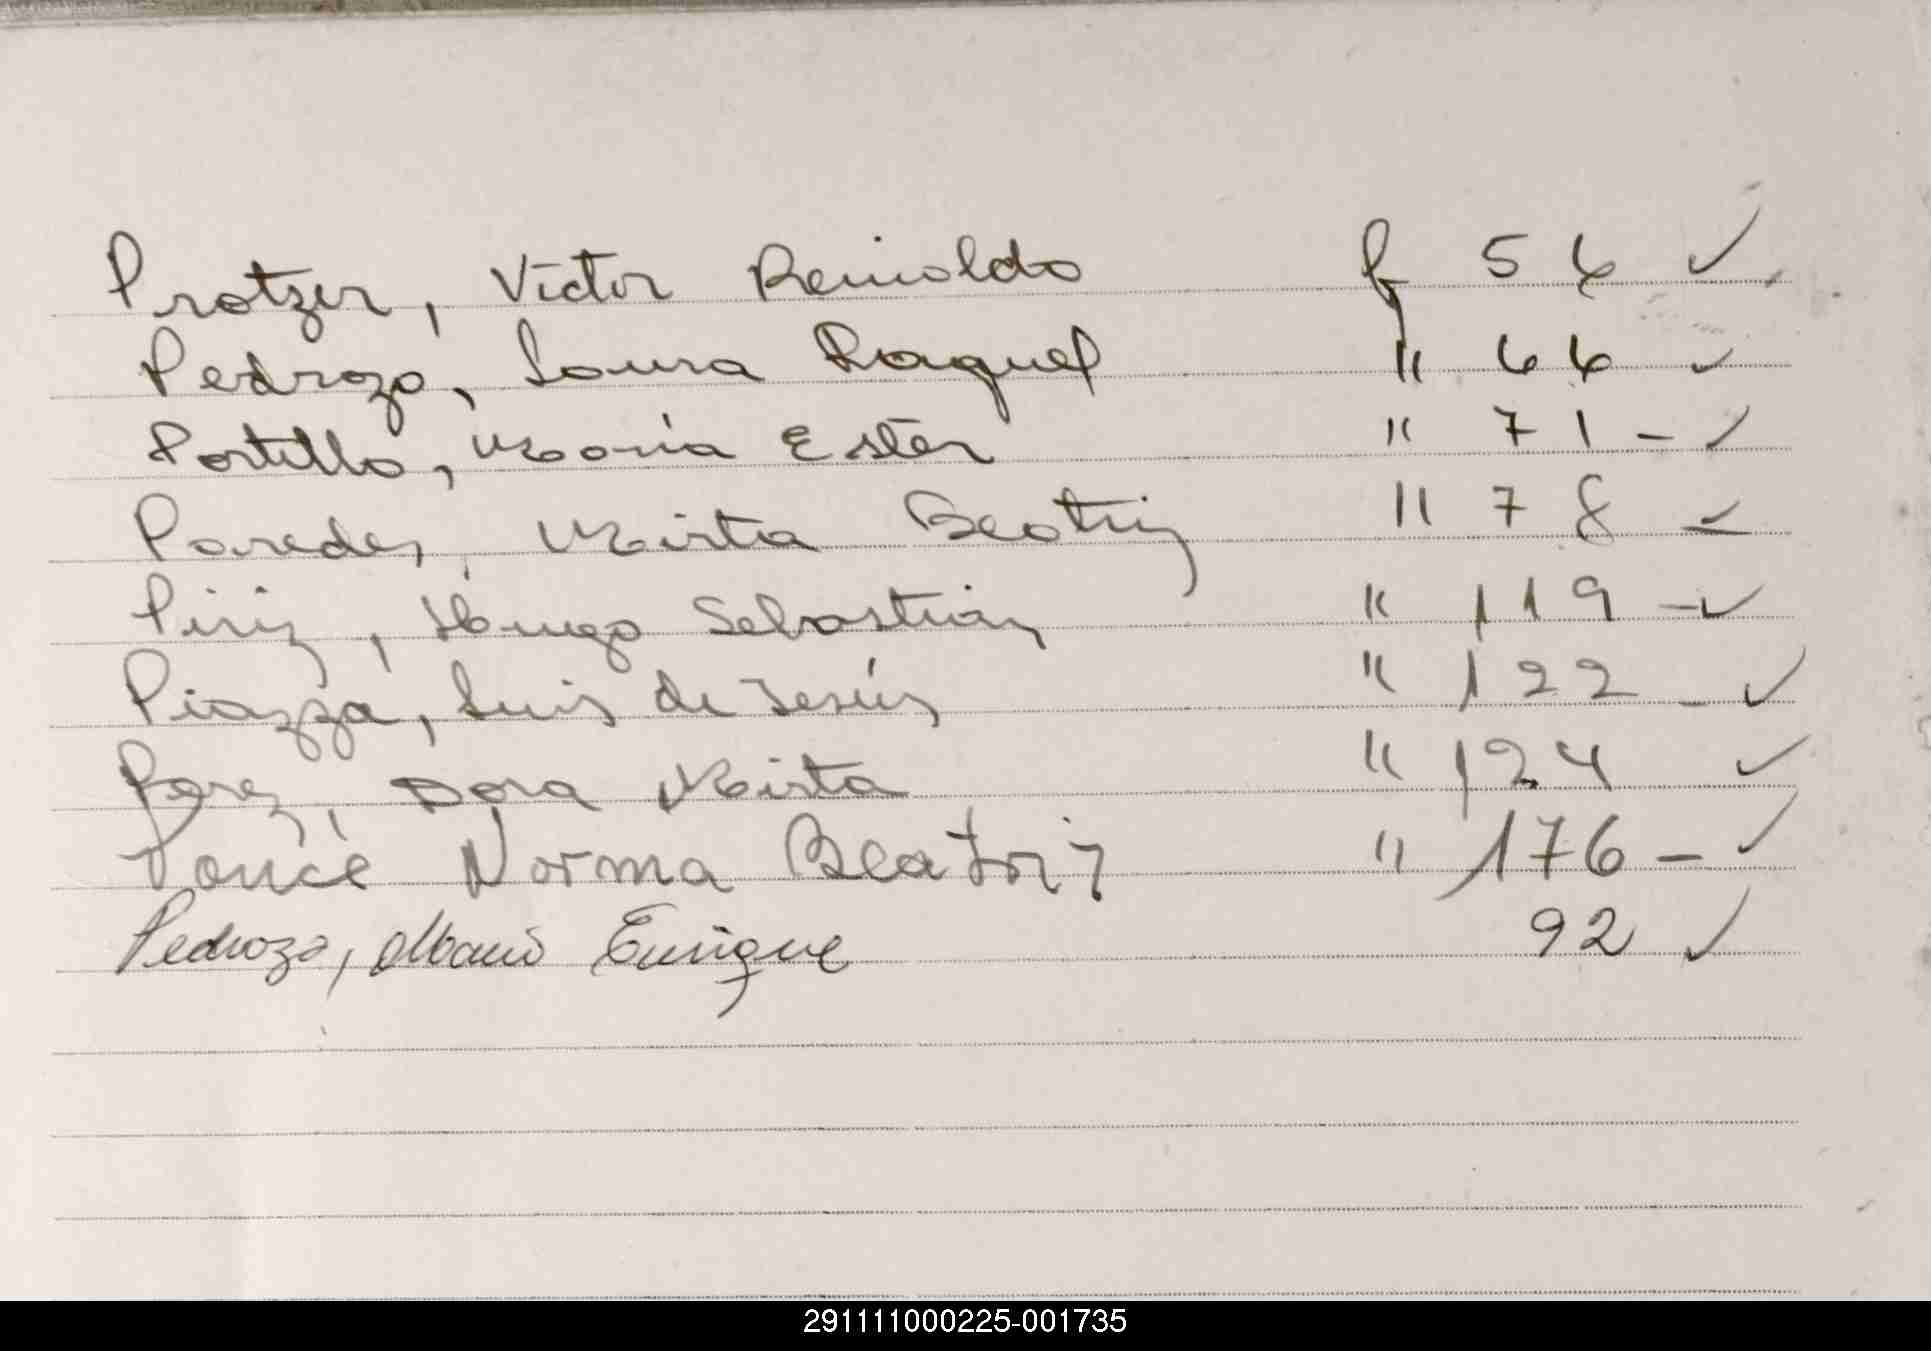 Protzer, Victor Reinoldo f 56 ✓
Pedrozo, Laura Raquel " 66 ✓
Portillo, María Ester " 71 - ✓
Paredes, Mirta Beatriz " 78 ✓
Piriz, Hugo Sebastian " 119 - ✓
Piazza, Luis de Jesús " 122 - ✓
Perez, Dora Mirta " 124 ✓
Ponce Norma Beatriz " 176 - ✓
Pedrozo, Enrique 92 ✓
291111000225-001735